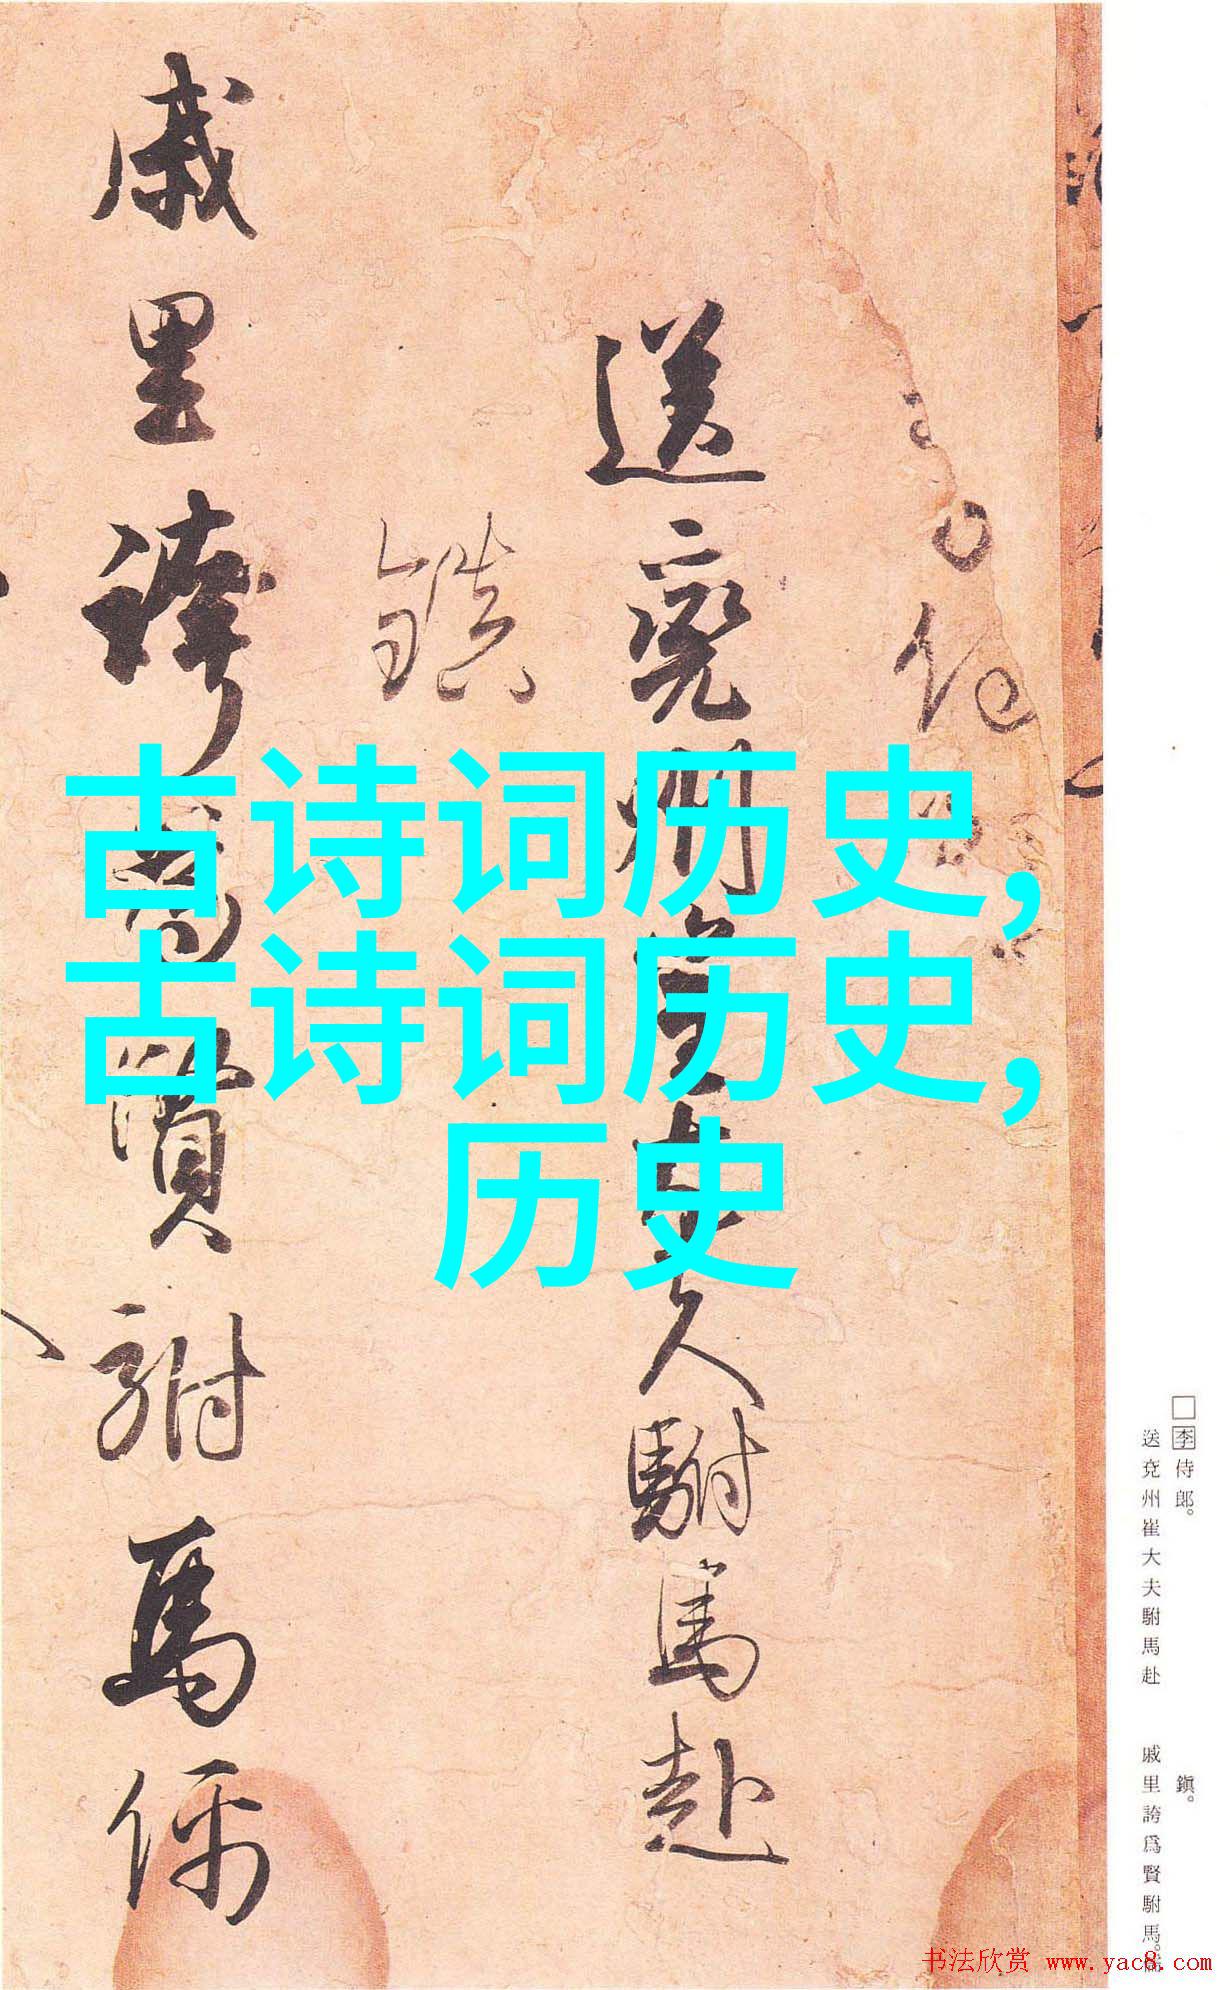 古诗词历史,
古诗词历史,
历史
送兖州崔大夫駙馬赴
鎮
戚里誇為賢駙馬儒
□李侍郎。
送兖州崔大夫駙馬赴
鎭。
戚里誇爲賢駙馬。儒
书法欣赏 www.yac8.com